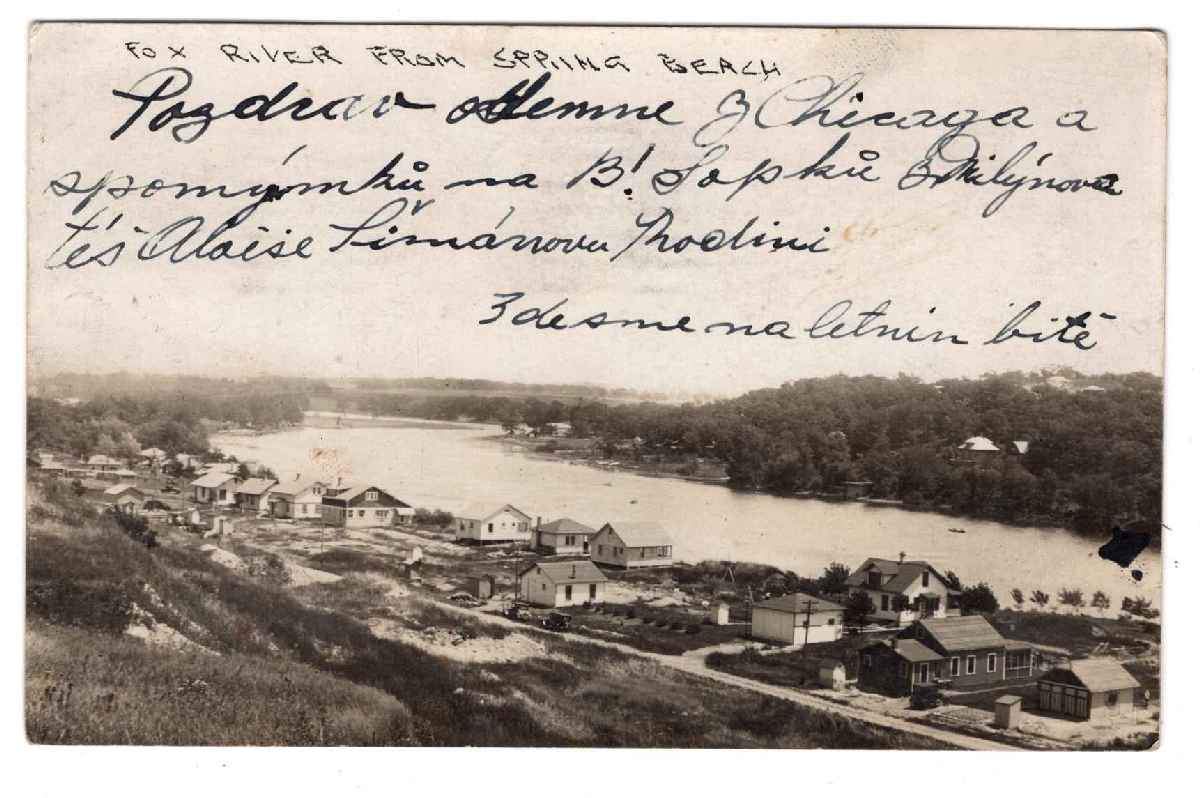 FOX RIVER FROM SPPIING BEACH
Pozdrav odemne z Chicaga a
spomýnků na B! Sopků z Milýnova
též Aloise Šimánovu Rodini
Zdesme na letnin bitě